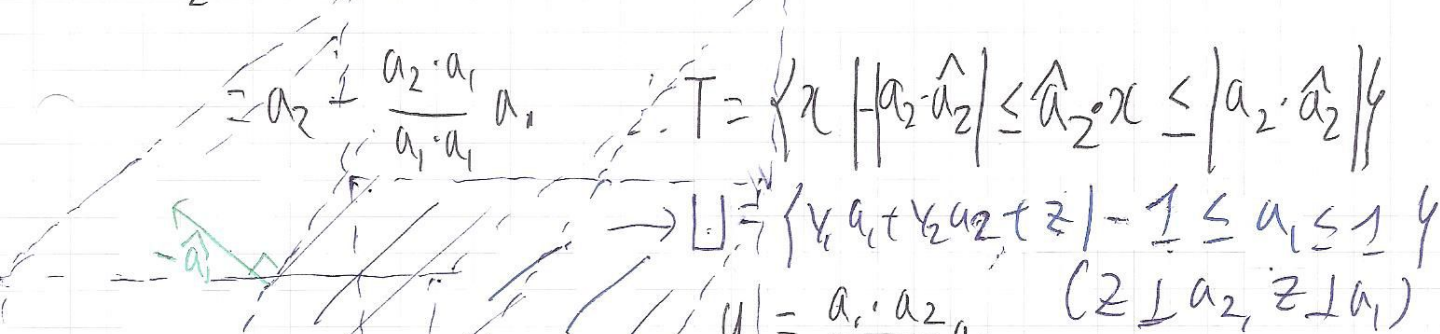 = a₂ - \frac{a₂·a₁}{a₁·a₁} a₁
T = {x | -|a₂·â₂| ≤ â₂·x ≤ |a₂·â₂|}
→ U = {y₁a₁ + y₂a₂ + z | -1 ≤ a₁ ≤ 1}
-â₁
(z ⊥ a₂, z ⊥ a₁)
= a₁·a₂